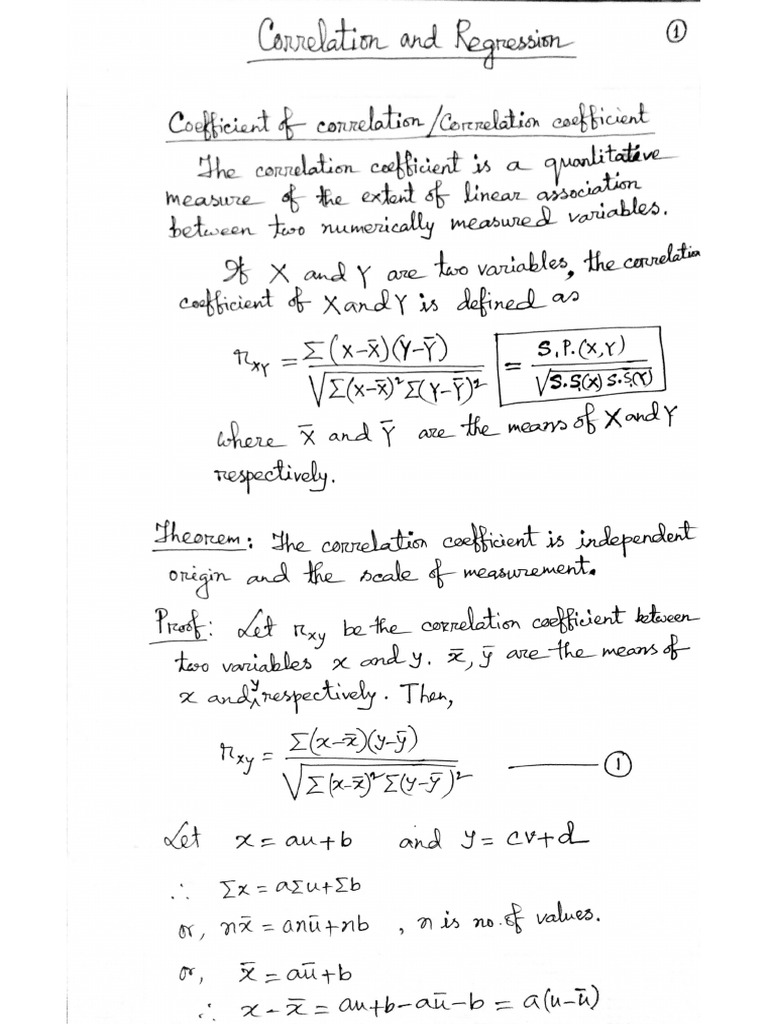 Correlation and Regression ①
Coefficient of correlation/Correlation coefficient
The correlation coefficient is a quantitative
measure of the extent of linear association
between two numerically measured variables.
If X and Y are two variables, the correlation
coefficient of X and Y is defined as
r_XY = Σ(X-X̄)(Y-Ȳ) / √Σ(X-X̄)² Σ(Y-Ȳ)² = S.P.(X,Y) / √S.S(X) S.S(Y)
where X̄ and Ȳ are the means of X and Y
respectively.
Theorem: The correlation coefficient is independent
origin and the scale of measurement.
Proof: Let r_xy be the correlation coefficient between
two variables x and y. x̄, ȳ are the means of
x and y respectively. Then,
r_xy = Σ(x-x̄)(y-ȳ) / √Σ(x-x̄)² Σ(y-ȳ)² —— ①
Let x = au+b and y = cv+d
∴ Σx = aΣu+Σb
or, nx̄ = anū+nb, n is no. of values.
or, x̄ = aū+b
∴ x-x̄ = au+b-aū-b = a(u-ū)